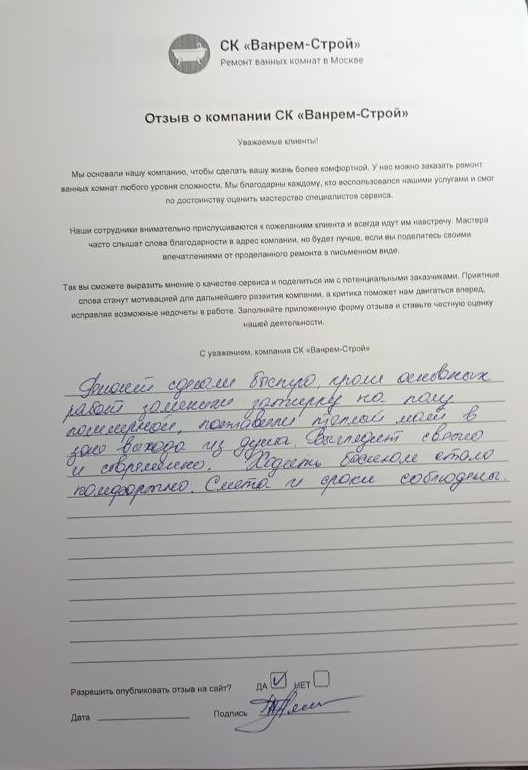 СК «Ванрем-Строй»
Ремонт ванных комнат в Москве
Отзыв о компании СК «Ванрем-Строй»
Уважаемые клиенты!
Мы основали нашу компанию, чтобы сделать вашу жизнь более комфортной. У нас можно заказать ремонт
ванных комнат любого уровня сложности. Мы благодарны каждому, кто воспользовался нашими услугами и смог
по достоинству оценить мастерство специалистов сервиса.
Наши сотрудники внимательно прислушиваются к пожеланиям клиента и всегда идут им навстречу. Мастера
часто слышат слова благодарности в адрес компании, но будет лучше, если вы поделитесь своими
впечатлениями от проделанного ремонта в письменном виде.
Так вы сможете выразить мнение о качестве сервиса и поделиться им с потенциальными заказчиками. Приятные
слова станут мотивацией для дальнейшего развития компании, а критика поможет нам двигаться вперед,
исправляя возможные недочеты в работе. Заполняйте приложенную форму отзыва и ставьте честную оценку
нашей деятельности.
С уважением, компания СК «Ванрем-Строй»
Ремонт сделали быстро, кроме основных
работ заменили затирку на полу
полимерной, поставили теплый мат в
зоне выхода из душа. Выглядит свежо
и современно. Ходить босиком стало
комфортно. Смета и сроки соблюдены.
Разрешить опубликовать отзыв на сайт? ДА НЕТ
Дата Подпись